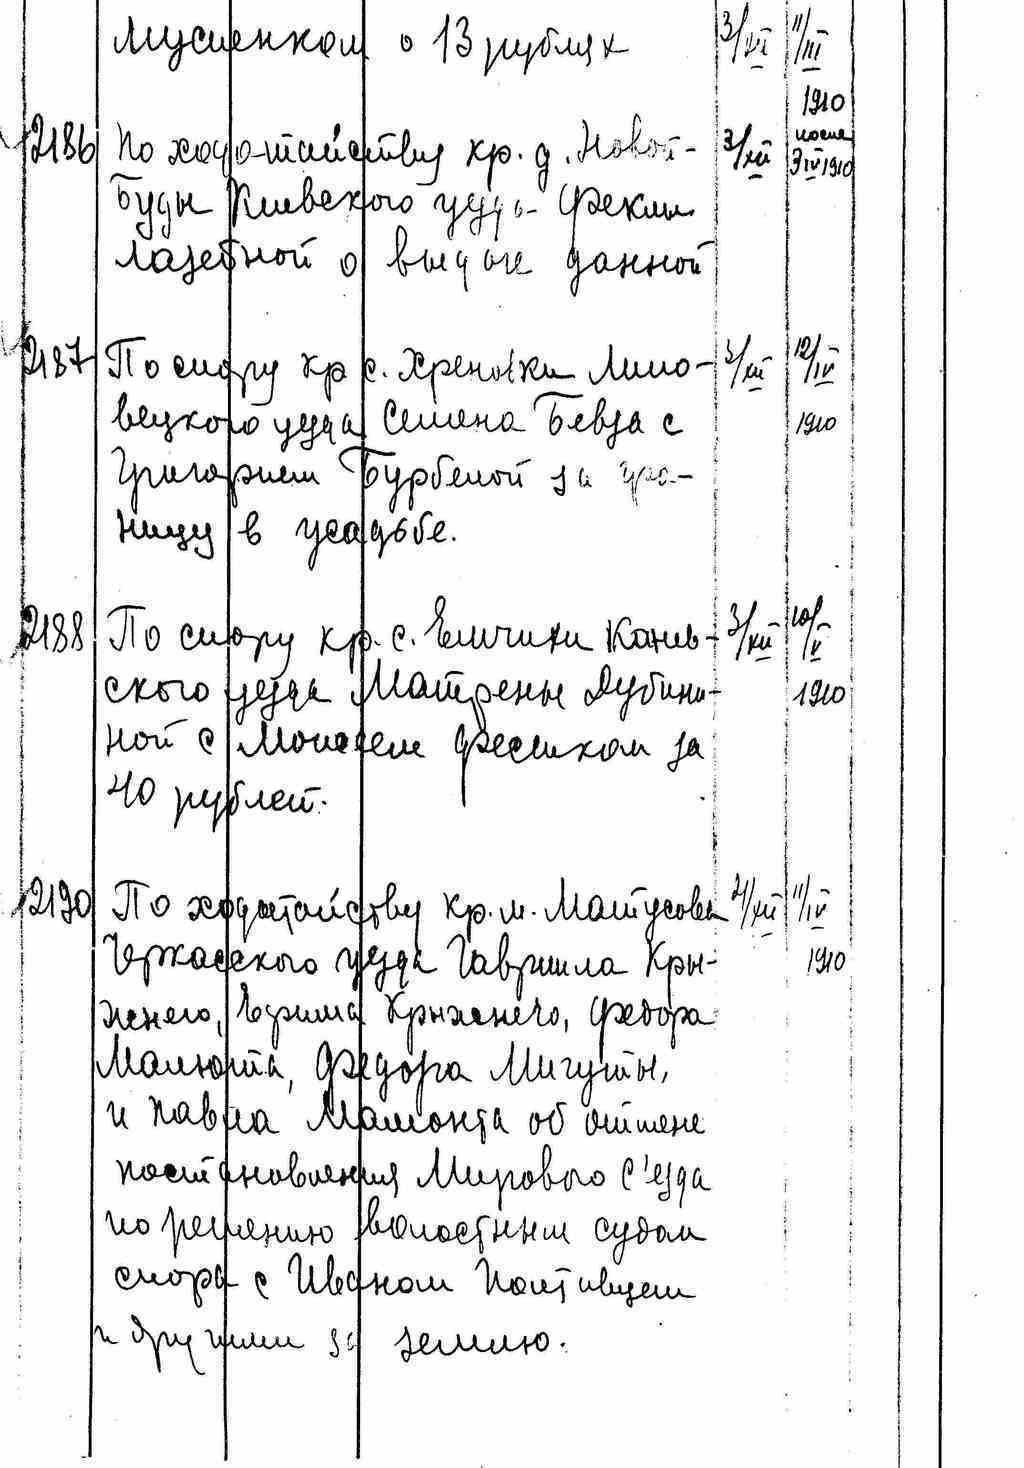 Мусиенком о 13 рублях 3/XII 11/III
1910
2186 По ходотайству кр. д. Новой- 3/XII после
Буды Киевского уезда Феклы 3 IV 1910
Лазебной о выдаче данной
2187 По спору кр с. Хреновки Липо- 3/XII 12/IV
вецкого уезда Семена Бевза с 1910
Григорием Бурбелой за гра-
ницу в усадьбе.
2188 По спору кр. с. Емчихи Канев- 3/XII 10/V
ского уезда Матрены Дубини- 1910
ной с Моисеем Фесиком за
40 рублей.
2190 По ходатайству кр. м. Матусова 4/XII 11/IV
Черкасского уезда Гавриила Кры- 1910
жнего, Ефима Крыжнего, Федора
Малюта, Федора Мигуты,
и Павла Мамонта об отмене
постановления Мирового С'езда
по решению волостным судом
спора с Иваном Полтавцем
и другими за землю.